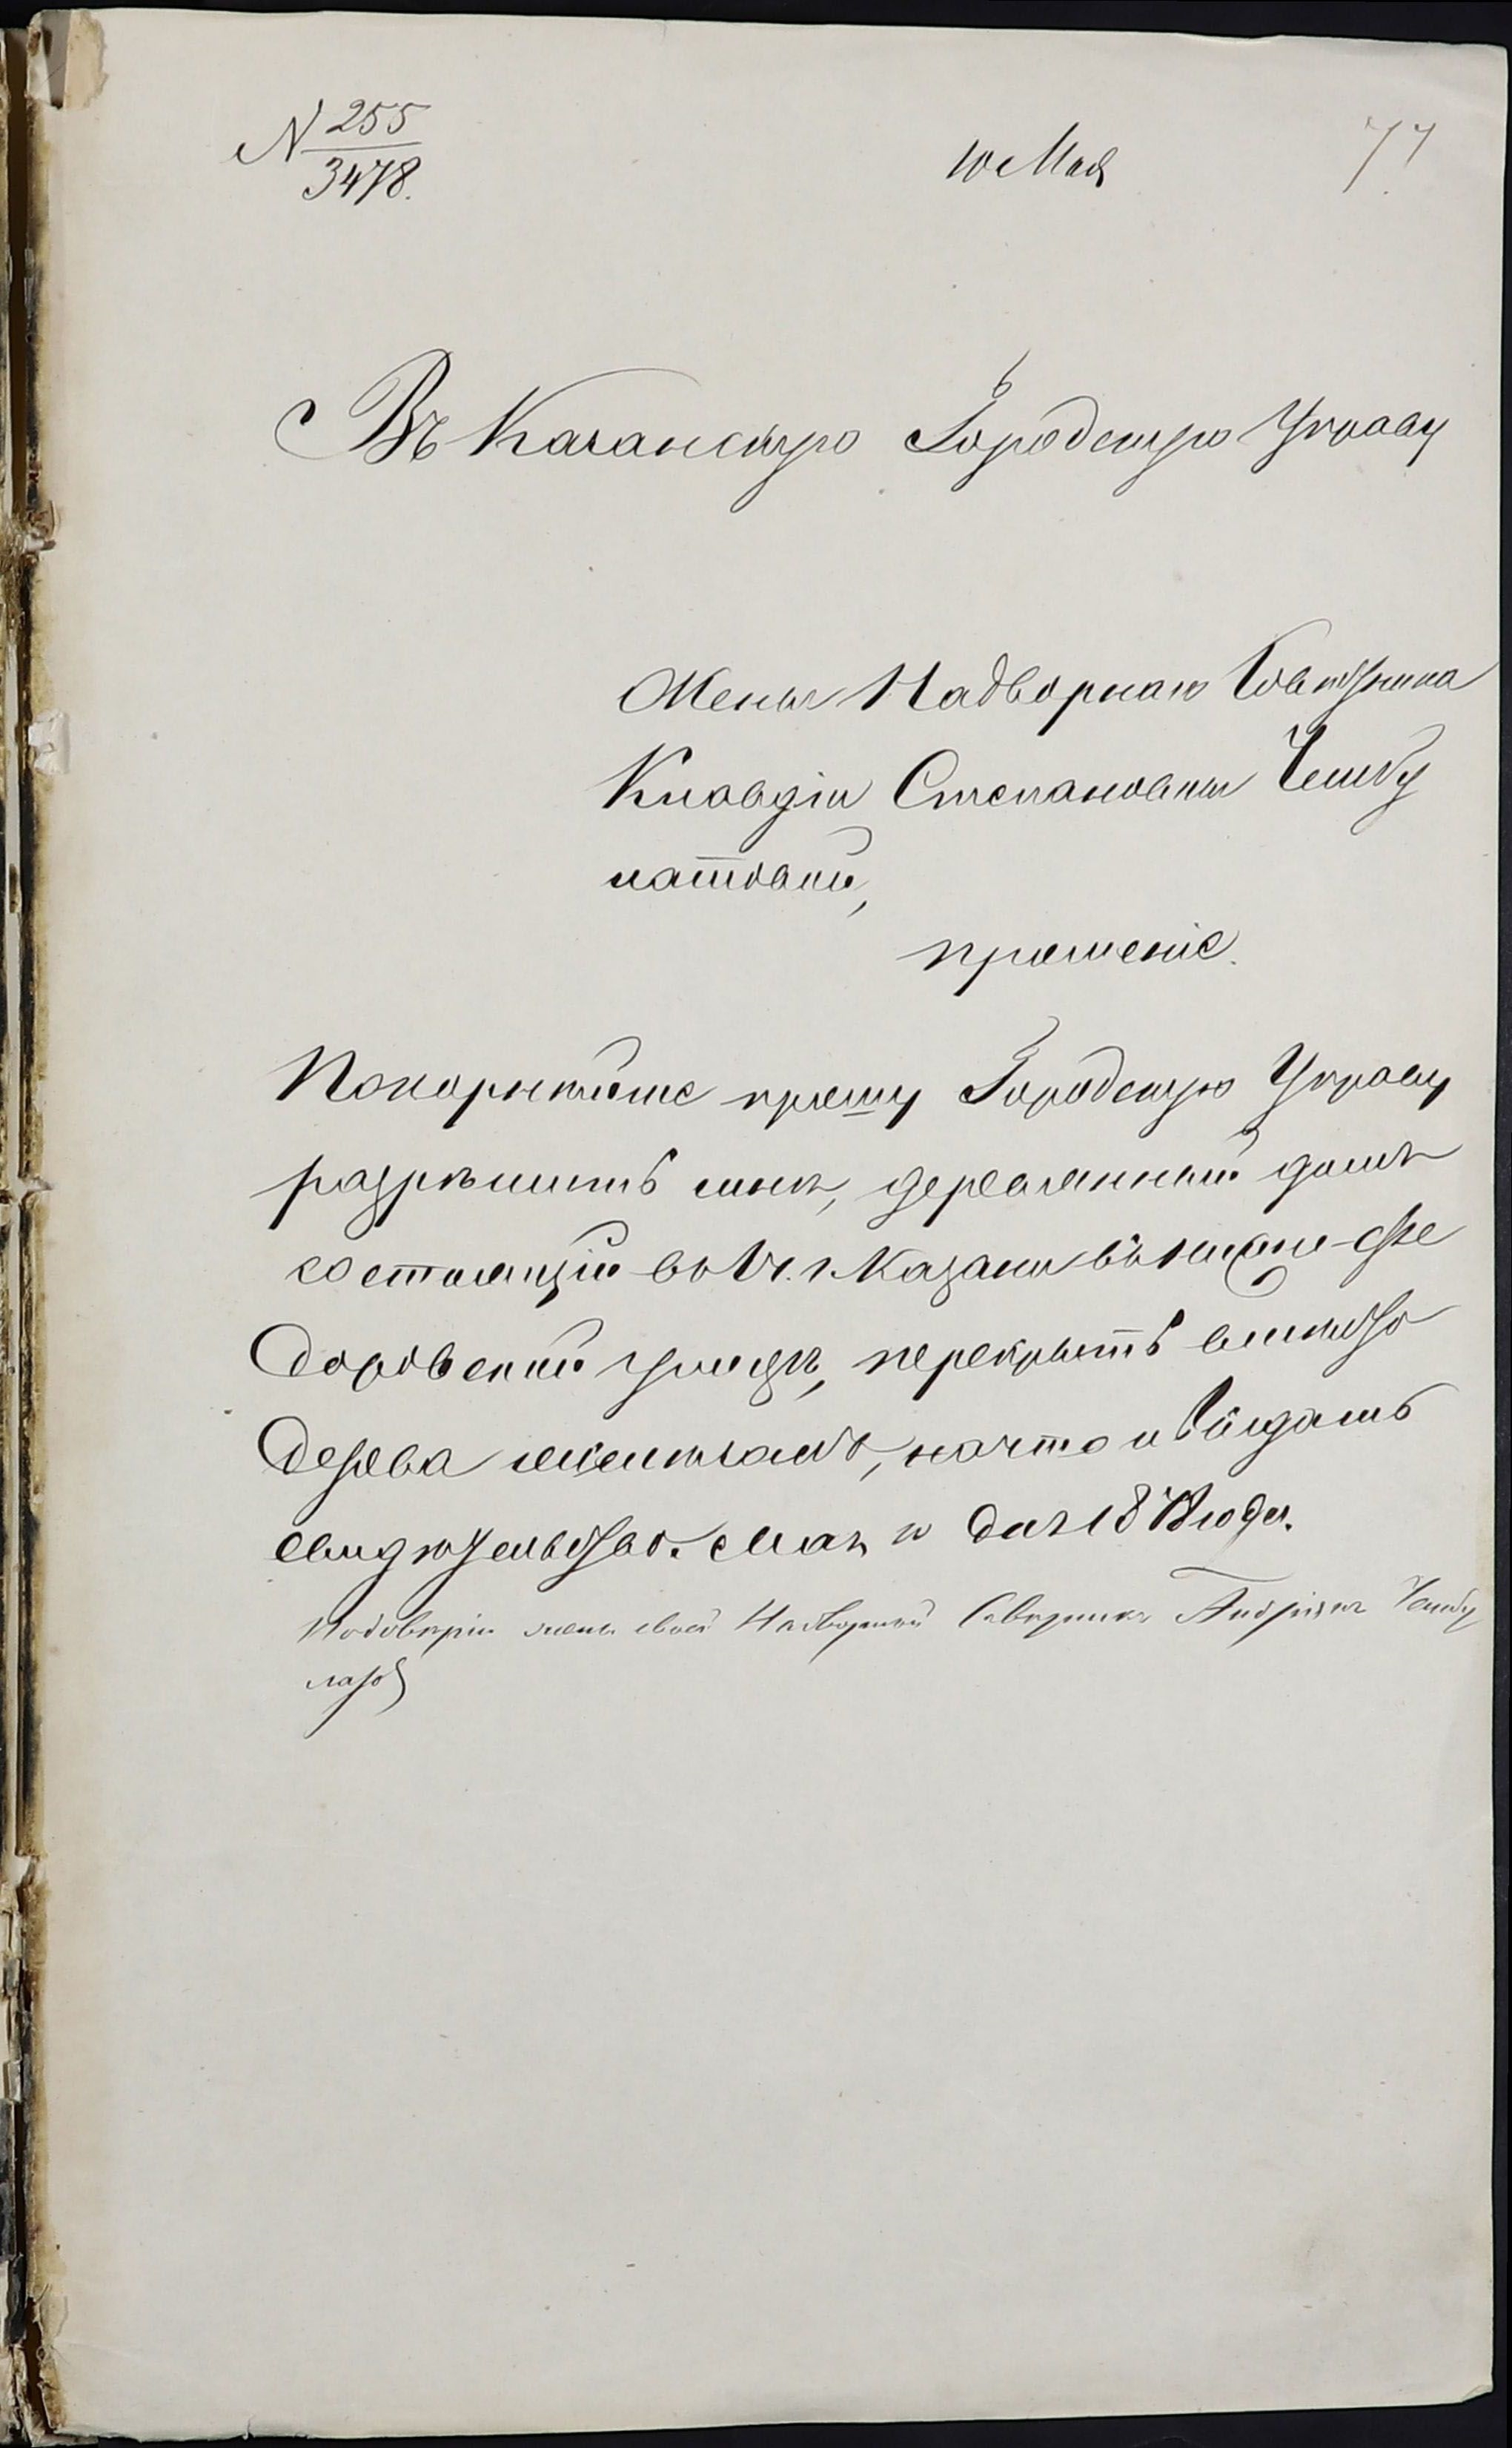 N 255
3478.
10 Мая
77
Въ Казанскую Городскую Управу
Жены Надворнаго Советника
Клавдіи Степановны Чембу
латовой,
прошеніе.
Покорнейше прошу Городскую Управу
разрѣшить мнѣ, деревянный домъ
состоящій во г. Казани
Ѳедоровской улицѣ, перекрыть вместо
дерева железомъ, на что и выдать
свидетельство. Мая 10 дня 1878 года.
По доверію жены своей Надворный Советникъ Чембу
латовъ